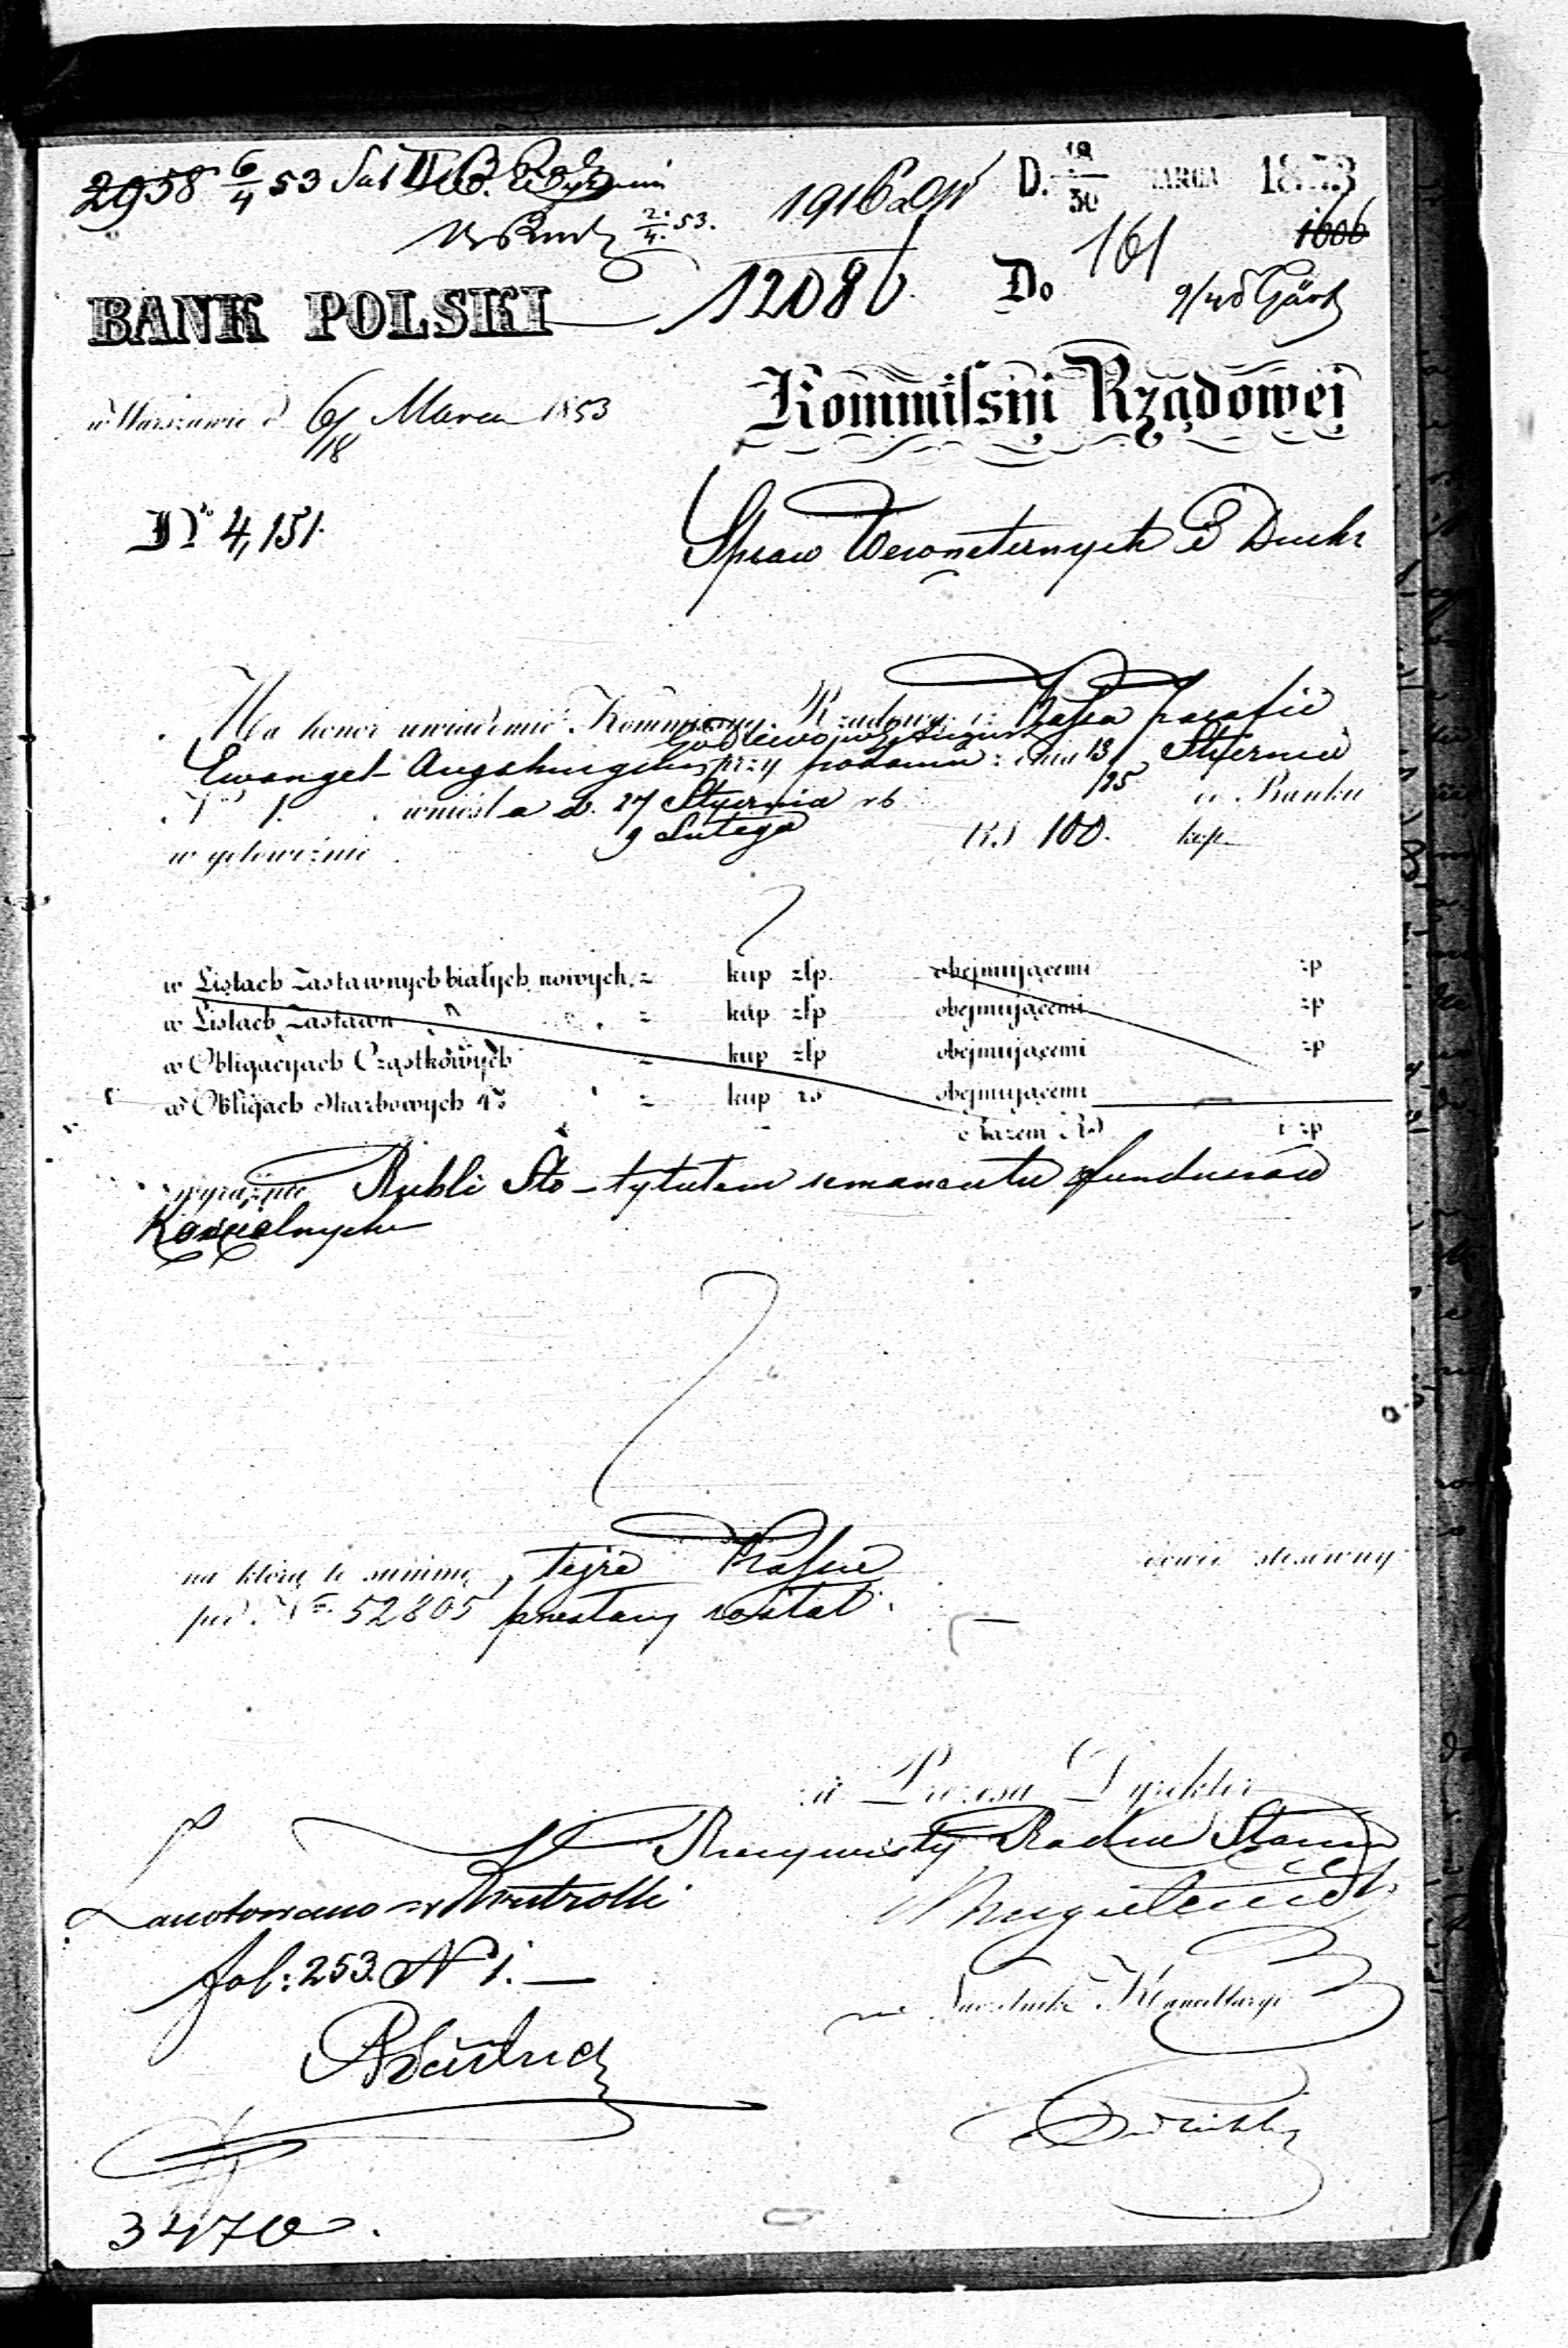 2958 6/4 53
D. 18/30 MARCA 1853
2/4 53.
161 1606
BANK POLSKI 12086 Do
w Warszawie d 6/18 Marca 1853
Kommissyi Rządowej
No 4,151.
Spraw Wewnetrznych i Duch
Ma honor uwiadomić Kommissyą Rządową iż Kassa parafii
Ewangel Augsburgskiej przy podaniu z dnia 13/25 Stycznia
No 1. wniosła d. 27 Stycznia rb do Banku
9 Lutego
w gotowiźnie RS 100. kop
w Listach Zastawnych białych nowych z kup złp. obejmującemi zp
w Listach Zastawn z kup złp obejmującemi zp
w Obligacyach Cząstkowych z kup złp obejmującemi zp
w Obligach Skarbowych 4% z kup rs obejmującemi
Razem RS i zp
wyraźnie Rubli Sto – tytułem remanentu funduszów
Kościelnych
na którą to summę, tejże Kassie dowód stosowny
pod No 52805 przesłany został.
za Prezesa Dyrektor
Rzeczywisty Radca Stanu
Zanotowano w Kontrolli
fol: 253. N 1. —
Naczelnik Kancellaryi
3470.